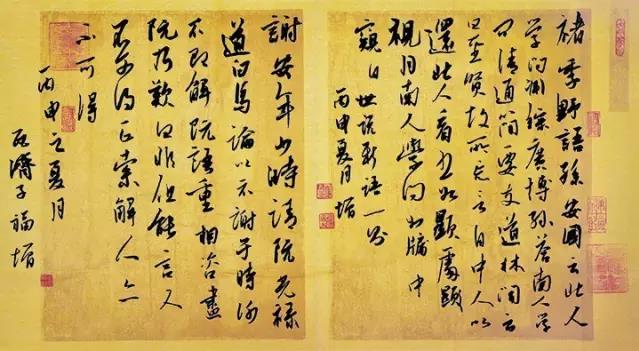 褚季野語孫安國云北人
学问淵綜廣博孫答南人学
问清通簡要支道林闻之
曰圣贤故所忘言自中人以
還北人看书如顯處顯
視月南人學问如牖中
窺日 世說新語一则
丙申夏月
謝安年少時請阮光禄
道白馬論以示謝于時謝
不即解阮語重相咨盡
阮乃歎曰非但能言人
不可得正索解人亦
不可得
丙申之夏月